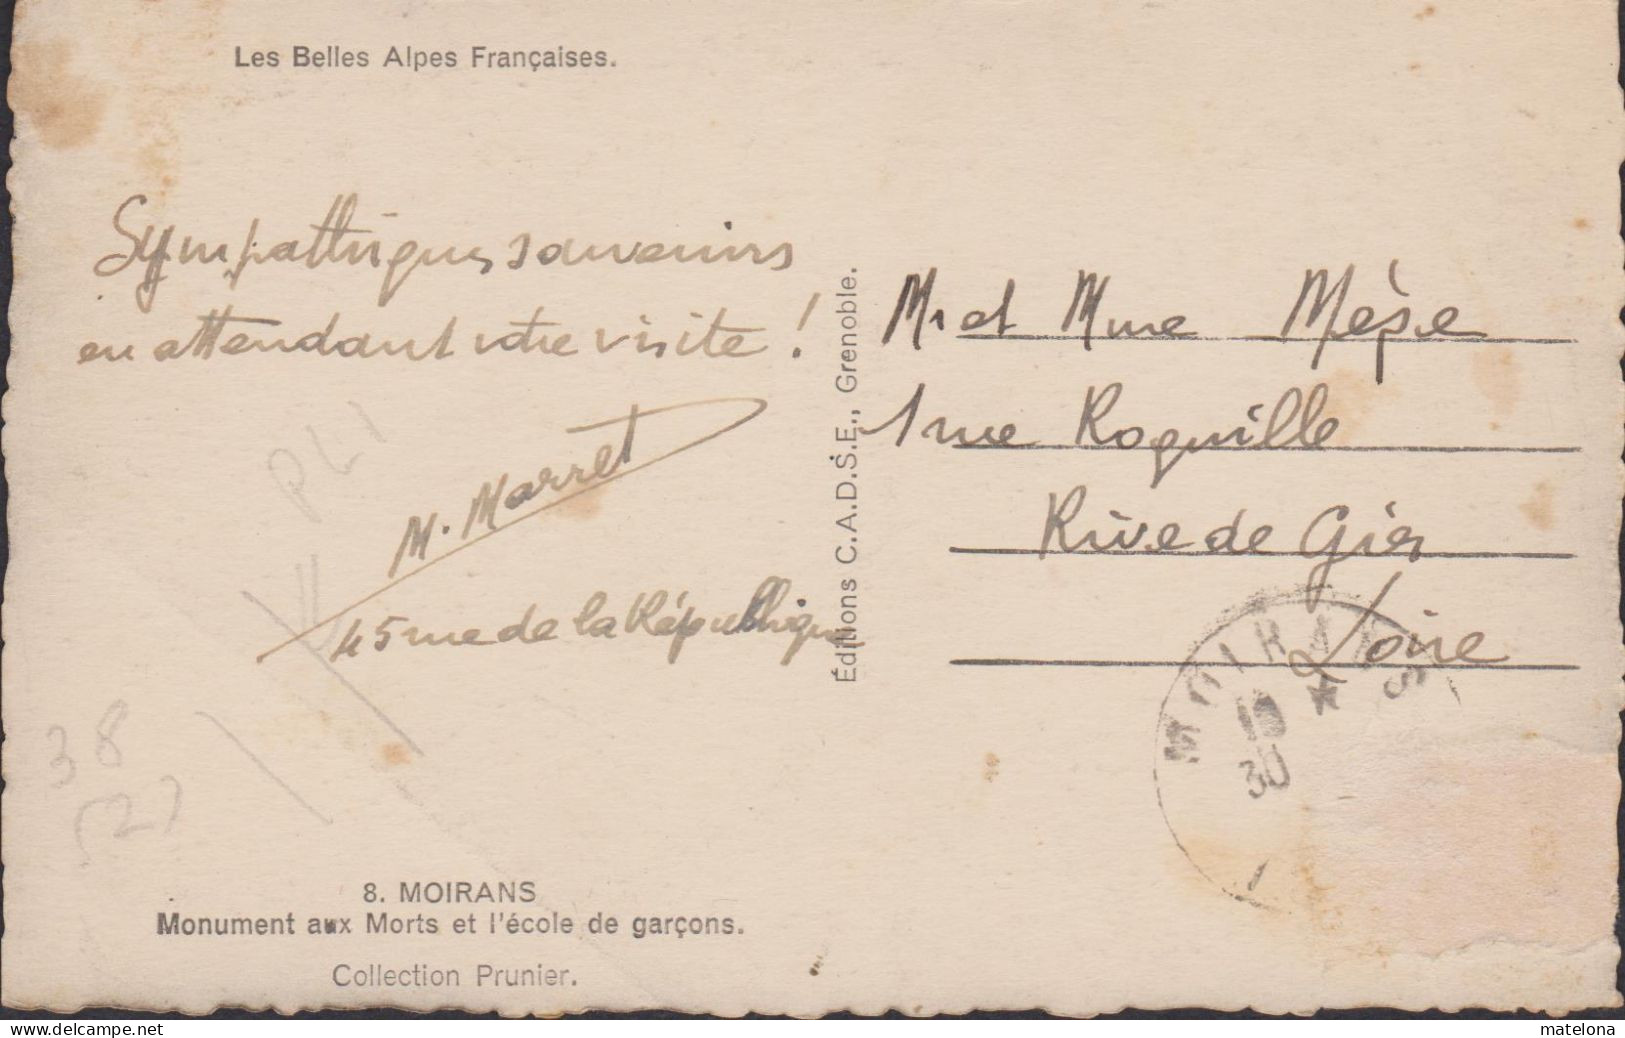 Les Belles Alpes Françaises.
Sympathiques souvenirs
en attendant votre visite !
M. Marret
45 rue de la République
PLI
38
(2)
8. MOIRANS
Monument aux Morts et l'école de garçons.
Collection Prunier.
Éditions C.A.D.S.E., Grenoble.
Mr et Mme Mèpe
1 rue Roquille
Rive de Gier
Loire
MOIRANS
10
30
www.delcampe.net
matelona